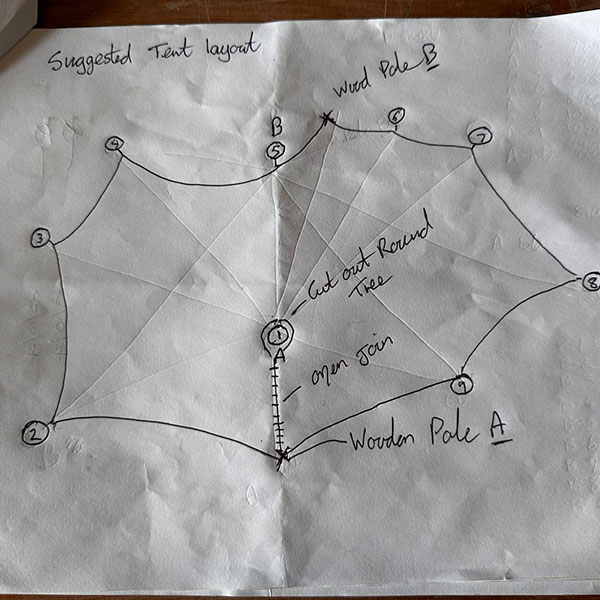 Suggested Tent layout
Wood Pole B
B
4
5
6
7
3
8
Cut out Round
Tree
1
A
open Join
9
2
Wooden Pole A